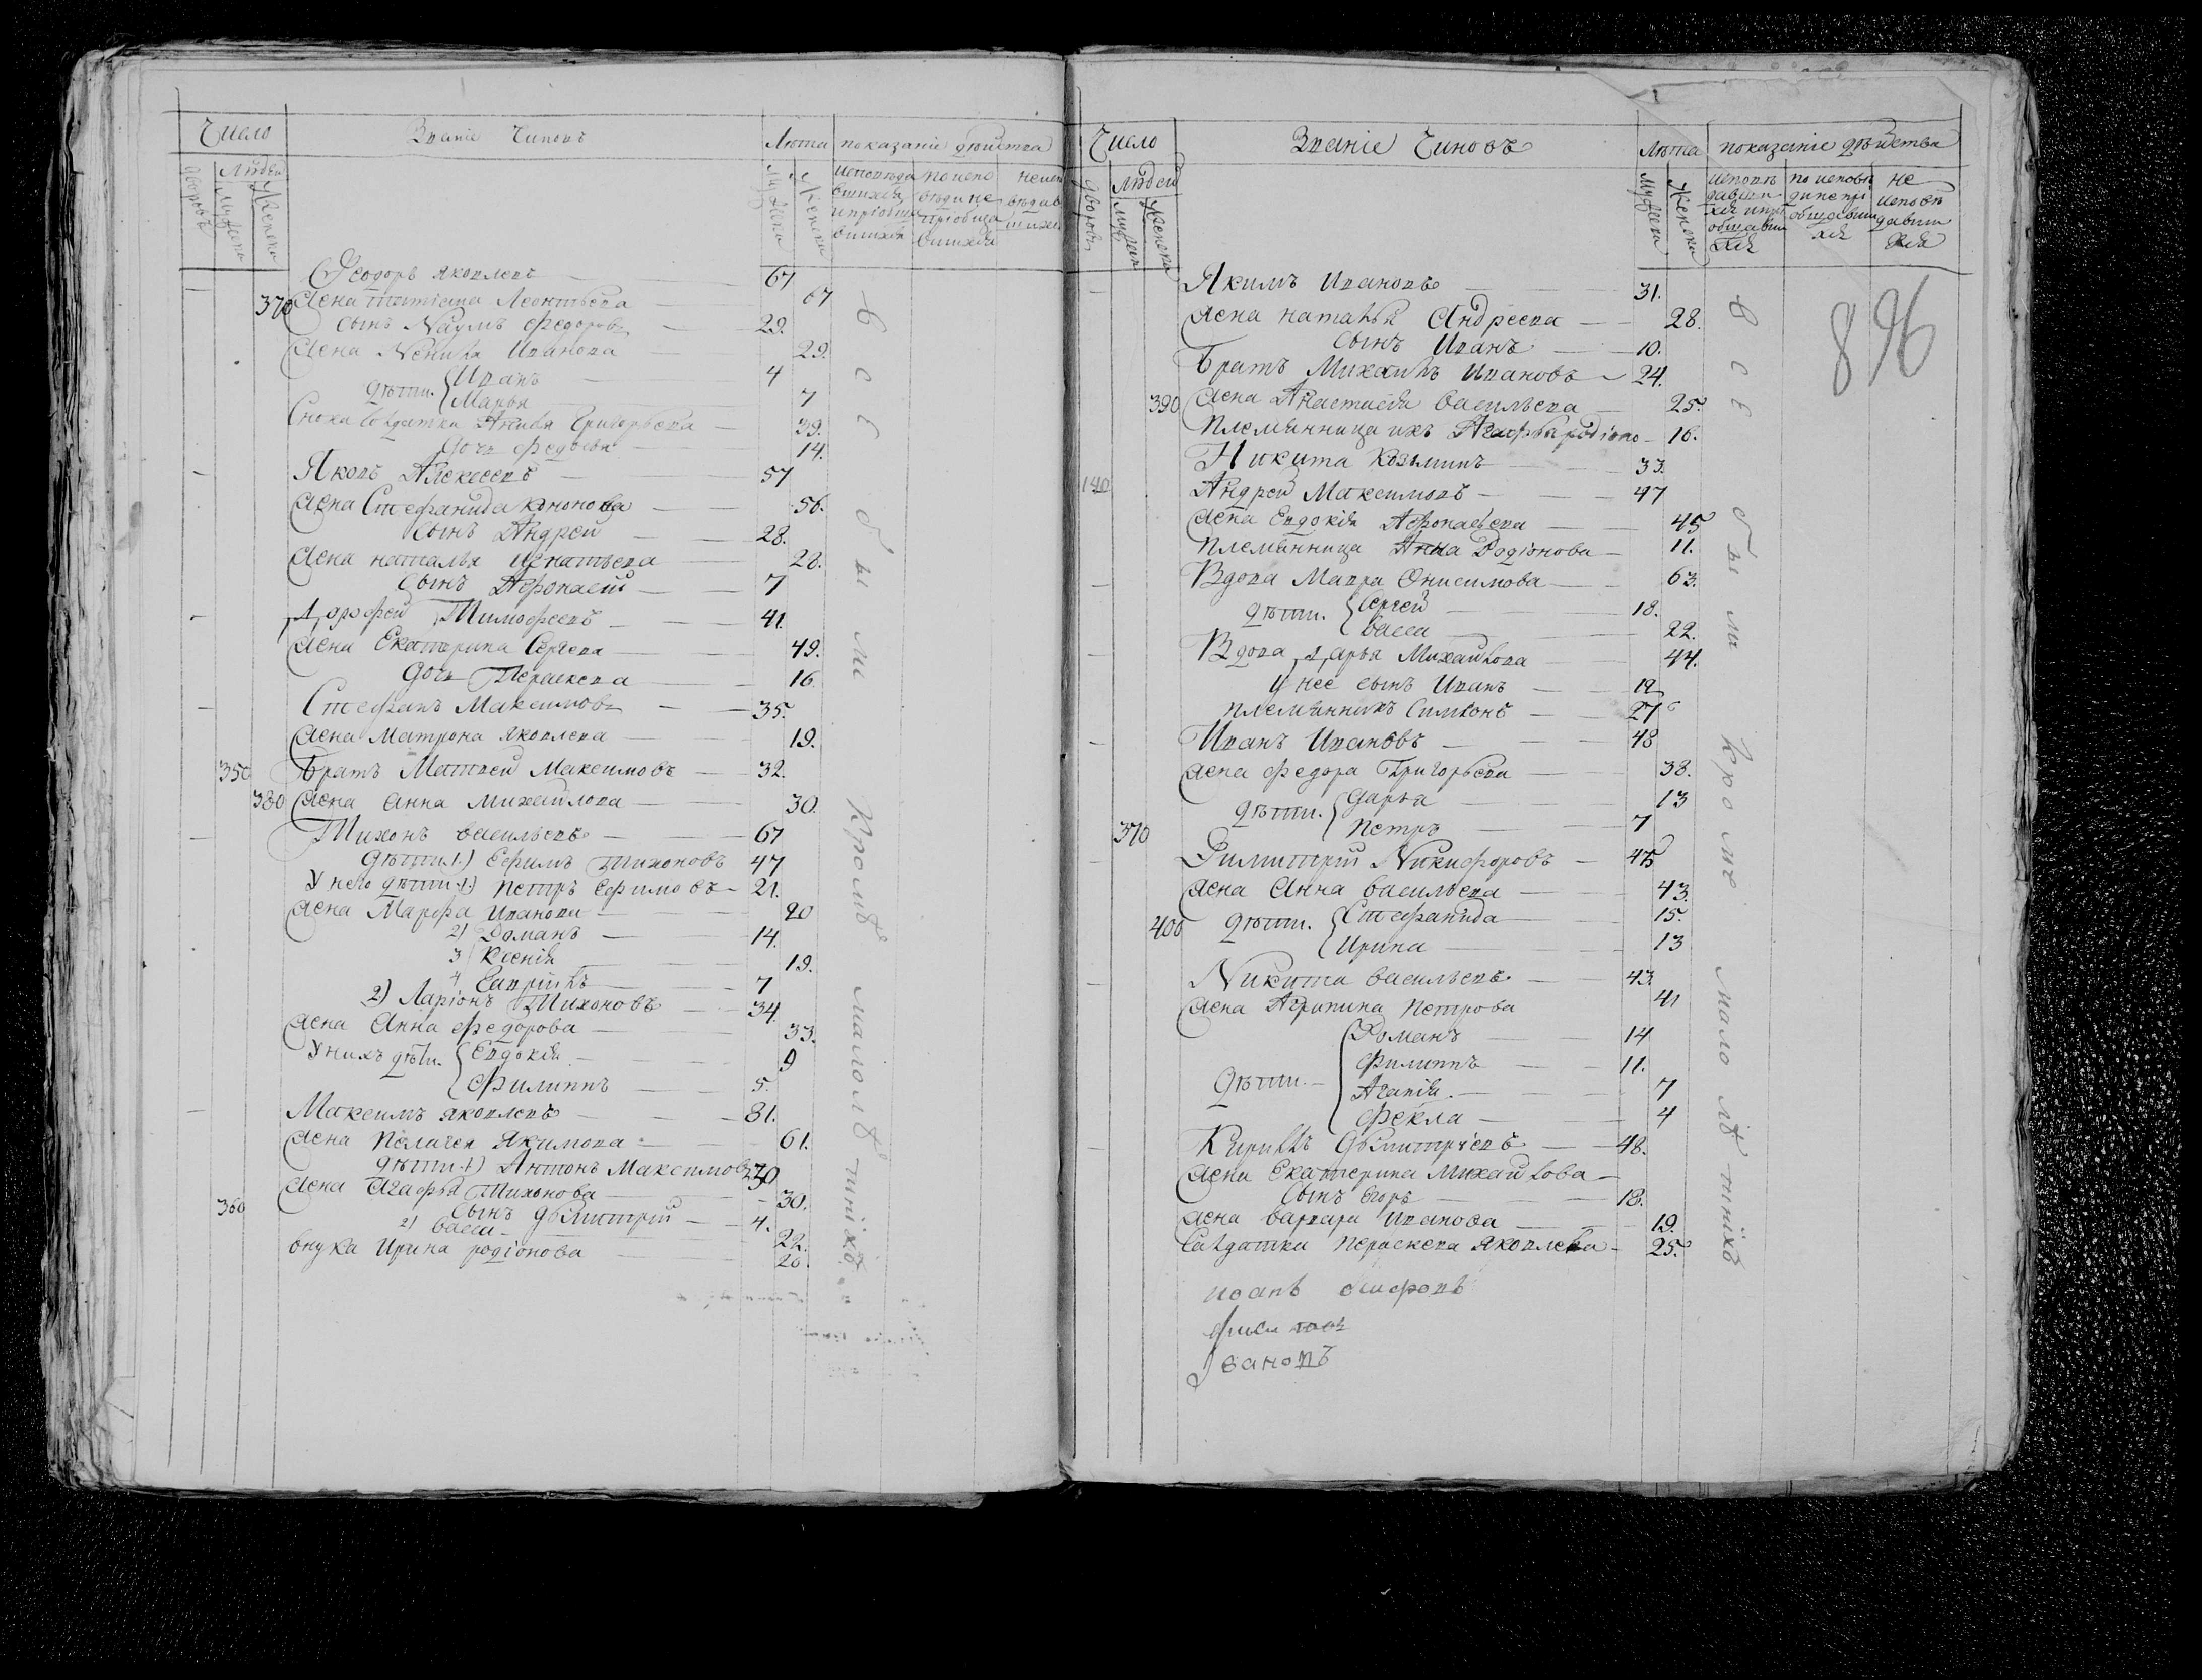 Число
Званіе Чиновъ
Лѣта
показаніе дѣйства
дворовъ
Людей
Мужеска
Женска
Мужеска
Женска
исповѣда
вшихся
и пріобщи
вшихся
по испо
вѣди не
пріобща
вшихся
не исп
вѣдав
шихся
Ѳеодоръ Яковлевъ 67
370 Жена татіана Леонтьева 67
сынъ Наумъ федоровъ 29.
Жена Ивановa 29.
дѣти. Иванъ 4
Марья 7
Сноха солдатка Григорьева 39.
дочь федосья 14.
Яковъ Алексеевъ 57
Жена Стефанида кононова 56.
сынъ Андрей 28.
Жена наталья игнатьева 28.
сынъ Афонасій 7
Дорофей Тимофеевъ 41.
Жена Екатерина Сергева 49.
дочь Пераскева 16
Стефанъ Максимовъ 35.
Жена Матрона яковлева 19.
350 Братъ Матвей Максимовъ 32.
380 Жена Анна михайлова 30.
Тихонъ васильевъ 67
дѣти 1.) Ефимъ тихоновъ 47
У него дѣти 1.) петръ Ефимовъ 21.
Жена Марфа иванова 20
2) Романъ 14.
3 Ксенія 19.
4 Гаврійлъ 7
2) Ларіонъ Тихоновъ 34
Жена Анна федорова 33.
У нихъ дѣти. Евдокія 9
филиппъ 5.
Максимъ яковлевъ 81.
Жена пелагея Якимова 61.
дѣти 1.) Антонъ Максимовъ 30
Жена Агафья Тихонова 30.
360 сынъ дбмитрій 4.
2) васса 22.
внука Ирина родіонова 20.
всѣ были Кромѣ малолѣтнихъ
Число
Званіе Чиновъ
Лѣта
показаніе дѣйства
дворовъ
Людей
Мужеска
Женска
Мужеска
Женска
исповѣ
давши
хся и прі
общавши
хся
по исповѣ
ди не прі
общавши
хся
не
исповѣ
давши
хся
896
Якимъ Ивановъ 31.
Жена наталья Андреева 28.
сынъ Иванъ 10.
Братъ Михайлъ Ивановъ 24.
390 Жена Анастасія васильева 25.
Племянница ихъ Агафья родіоно 16.
Никита Козьминъ 33.
140 Андрей Максимовъ 47
Жена Евдокія Афонасьева 45
племянница Анна Родіонова 11.
Вдова Мавра Онисимова 63.
дѣти. Сергей 18.
васса 22.
Вдова Дарья Михайлова 44.
У нее сынъ Иванъ 12
племянникъ Симіонъ 27
Иванъ Ивановъ 48
Жена федора Григорьева 38.
дѣти. дарья 13
370 петръ 7
Димитрій Никифоровъ 45
Жена Анна васильева 43.
400 дѣти. Стефанида 15.
Ирина 13
Никита васильевъ 43.
Жена Агрипина петрова 41
дѣти. Романъ 14
филиппъ 11.
Агапія 7
фекла 4
Кирилъ дбмитріевъ 48.
Жена Екатерина михайлова
сынъ егоръ 18.
Жена варвара Иванова 19.
Салдатка пераскева яковлева 25.
всѣ были Кромѣ малолѣтнихъ
иванъ